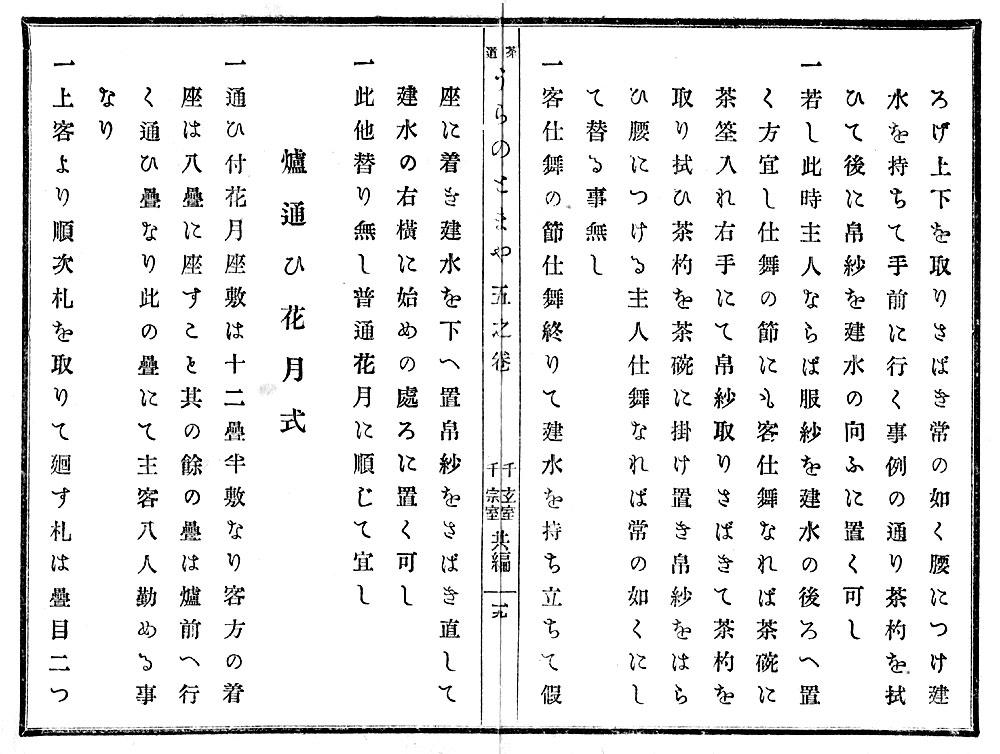 ろげ上下を取りさばき常の如く腰につけ建
水を持ちて手前に行く事例の通り茶杓を拭
ひて後に帛紗を建水の向ふに置く可し
一若し此時主人ならば服紗を建水の後ろへ置
く方宜し仕舞の節にも客仕舞なれば茶碗に
茶筌入れ右手にて帛紗取りさばきて茶杓を
取り拭ひ茶杓を茶碗に掛け置き帛紗をはら
ひ腰につける主人仕舞なれば常の如くにし
て替る事無し
一客仕舞の節仕舞終りて建水を持ち立ちて假
茶道
うらのとまや五之卷
千玄室
千宗室
共編
一九
座に着き建水を下へ置帛紗をさばき直して
建水の右横に始めの處ろに置く可し
一此他替り無し普通花月に順じて宜し
爐通ひ花月式
一通ひ付花月座敷は十二疊半敷なり客方の着
座は八疊に座すこと其の餘の疊は爐前へ行
く通ひ疊なり此の疊にて主客八人勤める事
なり
一上客より順次札を取りて廻す札は疊目二つ